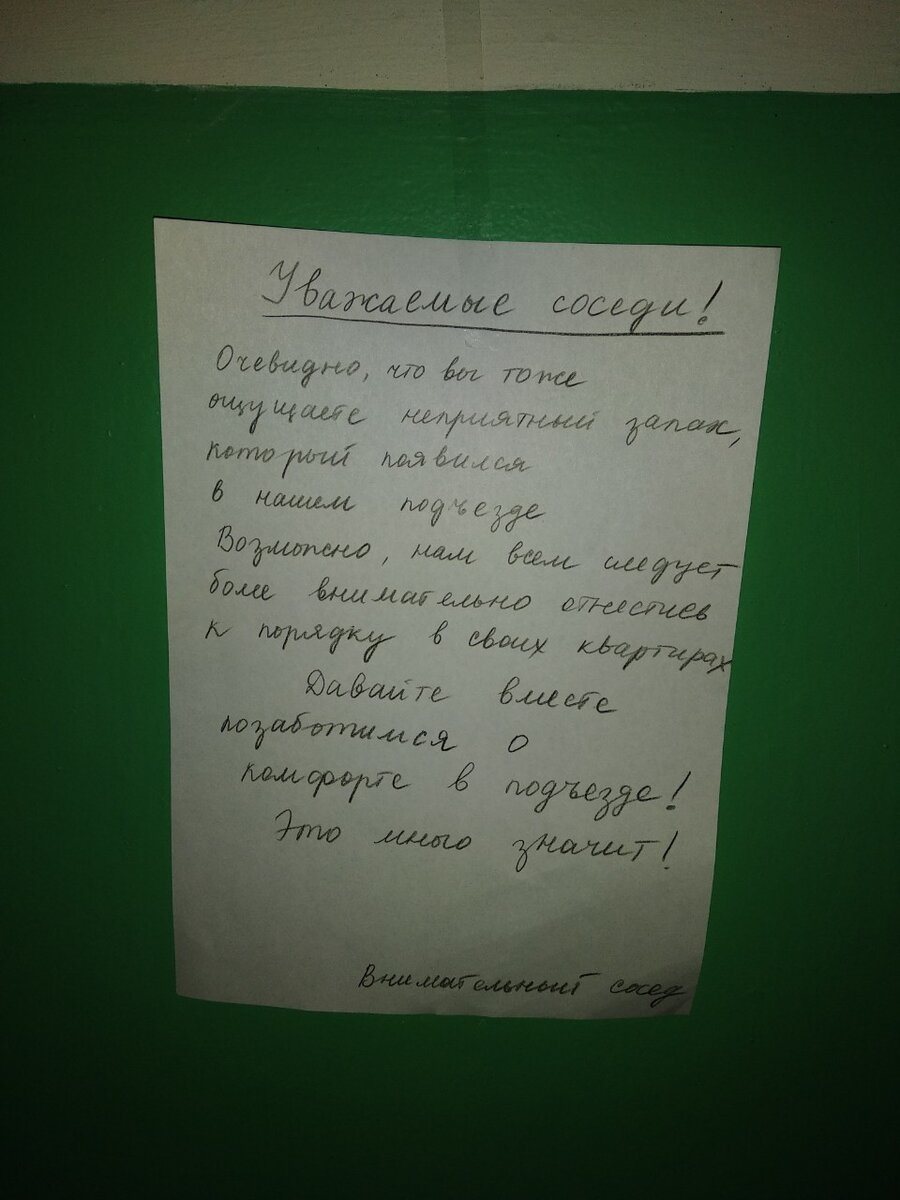 Уважаемые соседи!
Очевидно, что вы тоже
ощущаете неприятный запах,
который появился
в нашем подъезде
Возможно, нам всем следует
более внимательно отнестись
к порядку в своих квартирах
Давайте вместе
позаботимся о
комфорте в подъезде!
Это много значит!
Внимательный сосед